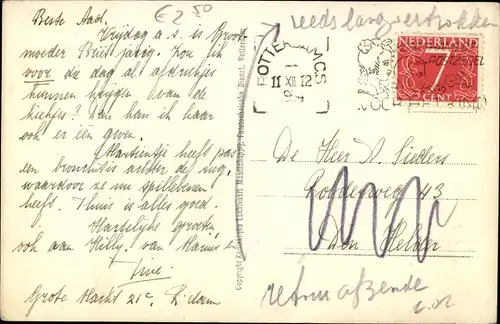 € 2.50
reeds lang vertrokken
Beste Aad.
Vrijdag a.s. is Groot
moeder Briet jarig. Zou ik
voor die dag al afdrukjes
kunnen krijgen van de
kiekjes? Dan kan ik haar
ook er een geven.
Martientje heeft pas
een bronchitis achter de rug,
waardoor ze nu spillebenen
heeft. Thuis is alles goed.
Hartelijke groeten
ook aan Willy, van Marius en
Tine.
Grote Markt 21c.
ROTTERDAM CS
11 XII 12
NEDERLAND
7
CENT
POSTZEGEL
De Heer A. Sieders
43
Den Helder
retour afzender